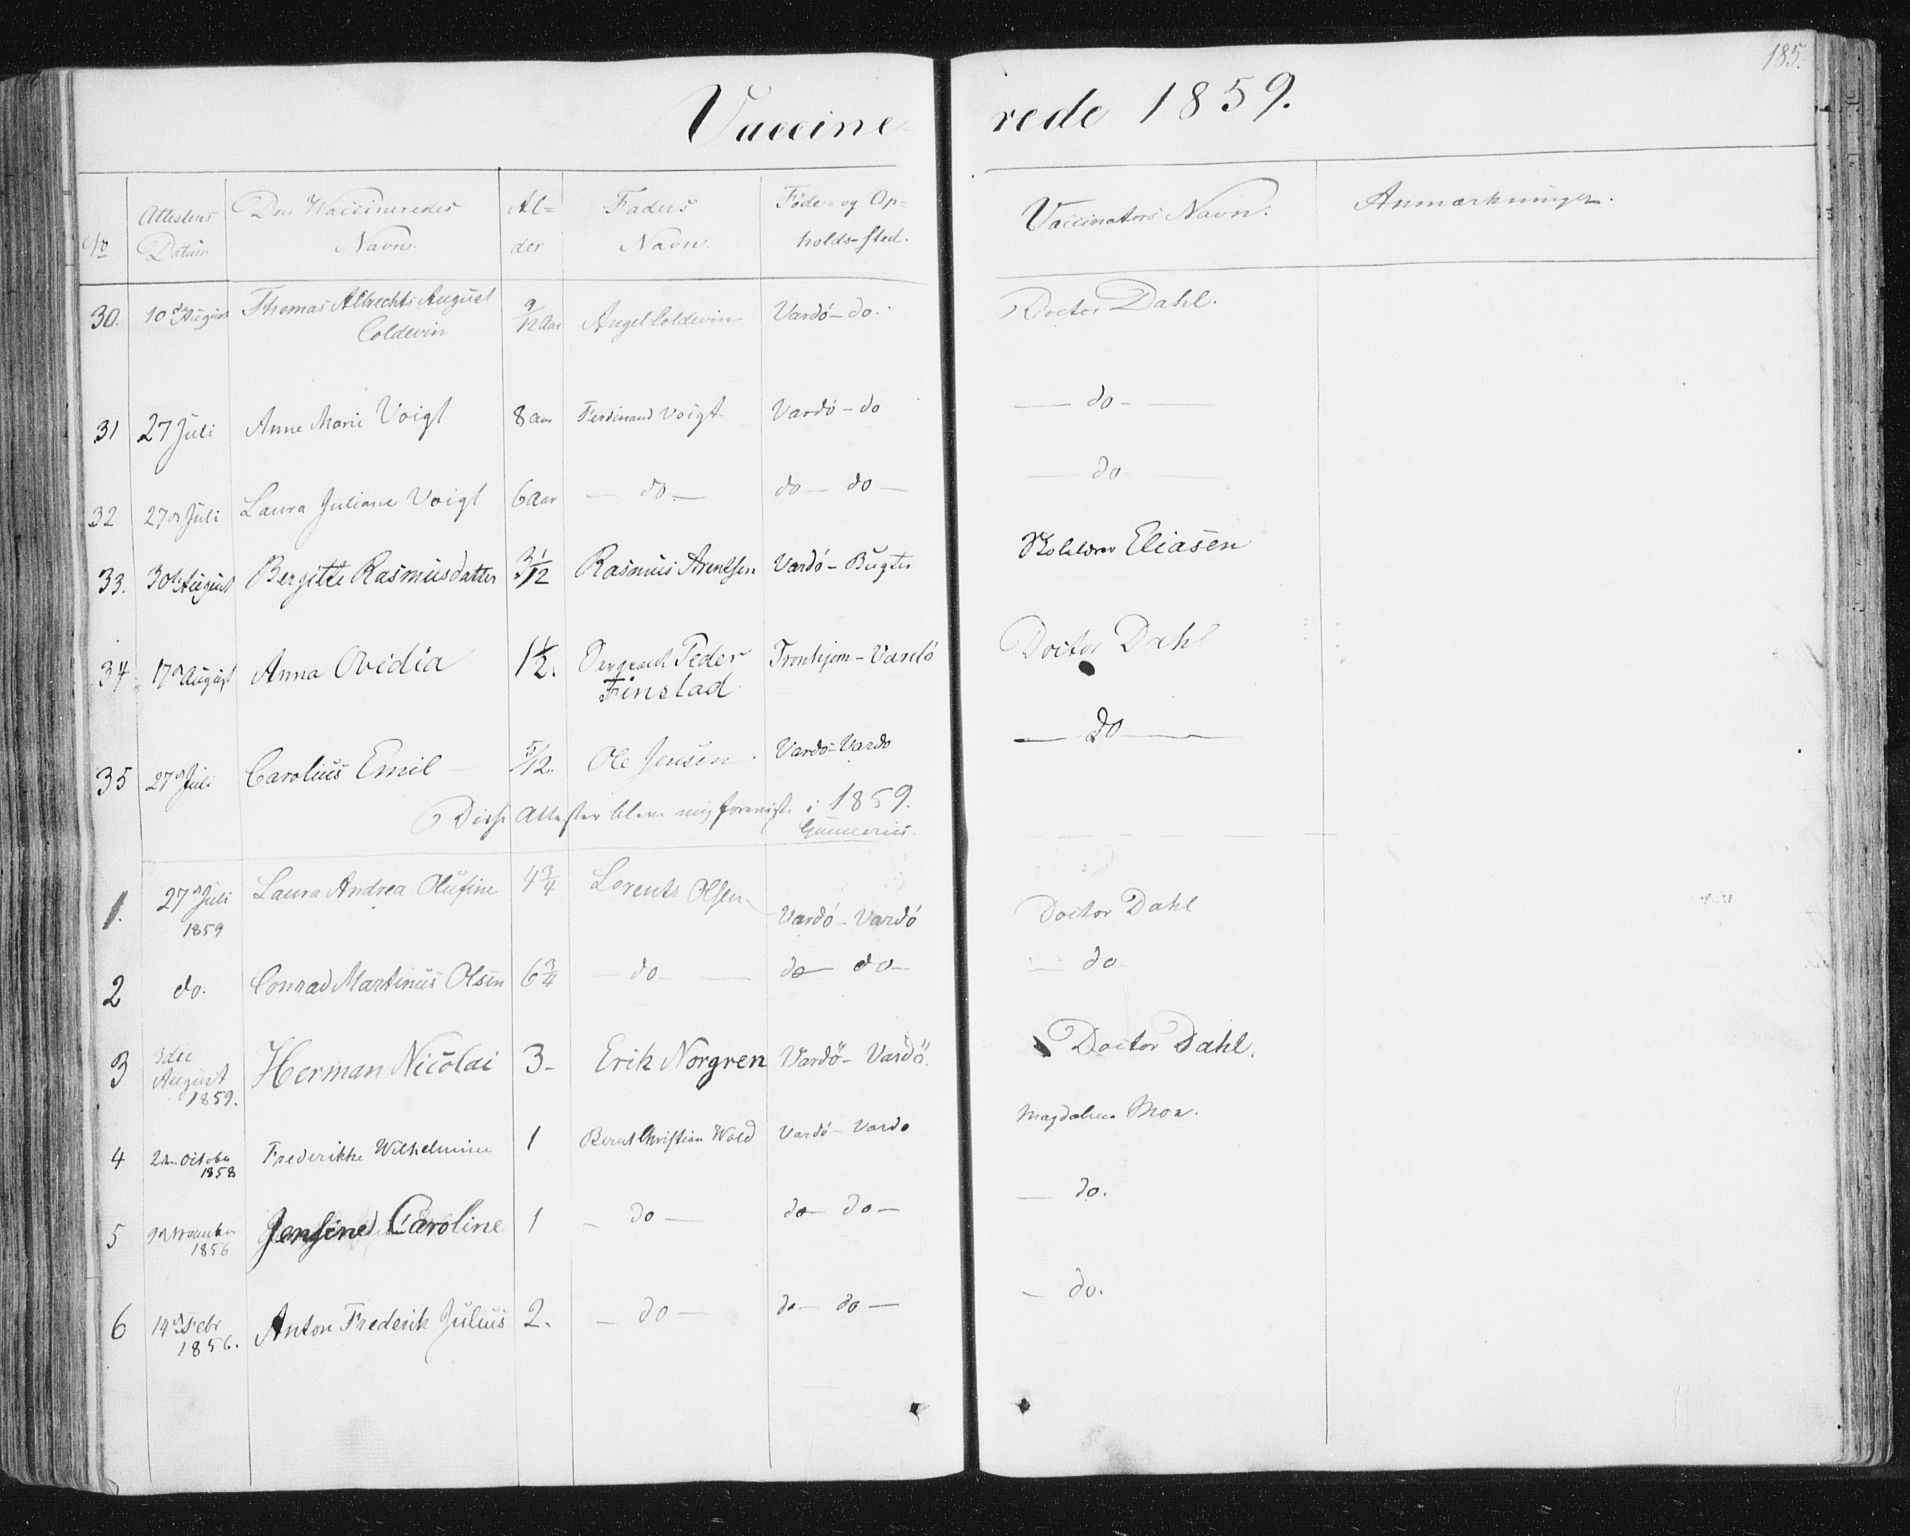 185.
Vaccinerede 1859.
No Attestens Datum Den Vaccineredes Navn. Alder Faders Navn. Føde- og Opholds-sted. Vaccinators Navn. Anmærkninger.
30. 10d August Thomas Albrechts August Coldevin 9/12 Aar Angel Coldevin Vardö - do. Doctor Dahl.
31 27 Juli Anne Marie Voigt 8 Aar Ferdinand Voigt Vardö - do — do —
32 27d Juli Laura Juliane Voigt 6 Aar — do — do — do — — do —
33. 30te August Bergitte Rasmusdatter 3 1/12 Rasmus Arentsen Vardö - Bugten Skolelærer Eliasen
34. 17d August Anna Ovidia 1 1/2. Sergeant Peder Finstad Tronhjem - Vardö Doctor Dahl
35 27d Juli Carolius Emil — 5/12. Ole Jensen. Vardö - Vardö — do —
Disse Attester bleve mig foreviste i 1859.
Gunnerius.
1. 27d Juli 1859 Laura Andrea Olufine 4 3/4 Lorents Olsen Vardö - Vardö Doctor Dahl
2 do. Conrad Martinus Olsen 6 3/4 — do — do — do — — do
3 3die August 1859. Herman Nicolai 3 - Erik Norgren Vardö - Vardö. Doctor Dahl.
4 2den October 1858 Frederikke Wilhelmine 1 Bernt Christian Wold Vardö - Vardö Magdalena Moe.
5 9d November 1856 Jensine Caroline 1 — do — do — do — — do.
6 14d Febr 1856. Anton Frederik Julius 2. — do — do — do — — do.